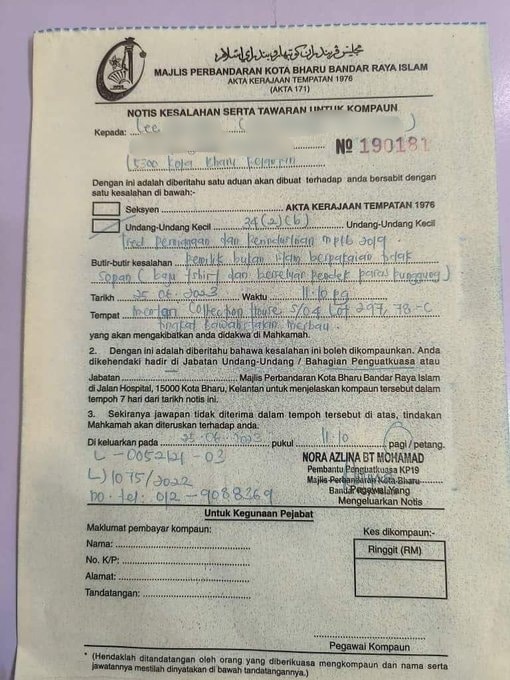 MAJLIS PERBANDARAN KOTA BHARU BANDAR RAYA ISLAM
AKTA KERAJAAN TEMPATAN 1976
(AKTA 171)
NOTIS KESALAHAN SERTA TAWARAN UNTUK KOMPAUN
Kepada: Lee
Nº 190181
15300 Kota Bharu Kelantan
Dengan ini adalah diberitahu satu aduan akan dibuat terhadap anda bersabit dengan
satu kesalahan di bawah:-
Seksyen AKTA KERAJAAN TEMPATAN 1976
Undang-Undang Kecil 34(2)(b) Undang-Undang Kecil
Tred Perniagaan dan Perindustrian MPKB 2019
Butir-butir kesalahan Pemilik bukan Islam berpakaian tidak
Sopan (baju tshirt dan berseluar pendek paras punggung)
Tarikh 25.06.2023 Waktu 11.10 pg
Tempat Collection House S/04 Lot 297, 78-C
Tingkat Bawah Jalan Merbau
yang akan mengakibatkan anda didakwa di Mahkamah.
2. Dengan ini adalah diberitahu bahawa kesalahan ini boleh dikompaunkan. Anda
dikehendaki hadir di Jabatan Undang-Undang / Bahagian Penguatkuasa atau
Jabatan Majlis Perbandaran Kota Bharu Bandar Raya Islam
di Jalan Hospital, 15000 Kota Bharu, Kelantan untuk menjelaskan kompaun tersebut dalam
tempoh 7 hari dari tarikh notis ini.
3. Sekiranya jawapan tidak diterima dalam tempoh tersebut di atas, tindakan
Mahkamah akan diteruskan terhadap anda.
Di keluarkan pada 25.06.2023 pukul 11.10 pagi / petang.
L-0052121-03
L) 1075/2022
no. tel: 012-9088369
NORA AZLINA BT MOHAMAD
Pembantu Penguatkuasa KP19
Majlis Perbandaran Kota Bharu
Bandar Raya Islam
Pegawai Yang
Mengeluarkan Notis
Untuk Kegunaan Pejabat
Maklumat pembayar kompaun:
Nama:
No. K/P:
Alamat:
Tandatangan:
Kes dikompaun:-
Ringgit (RM)
Pegawai Kompaun
* (Hendaklah ditandatangan oleh orang yang diberikuasa mengkompaun dan nama serta
jawatannya mestilah dinyatakan di bawah tandatangannya.)